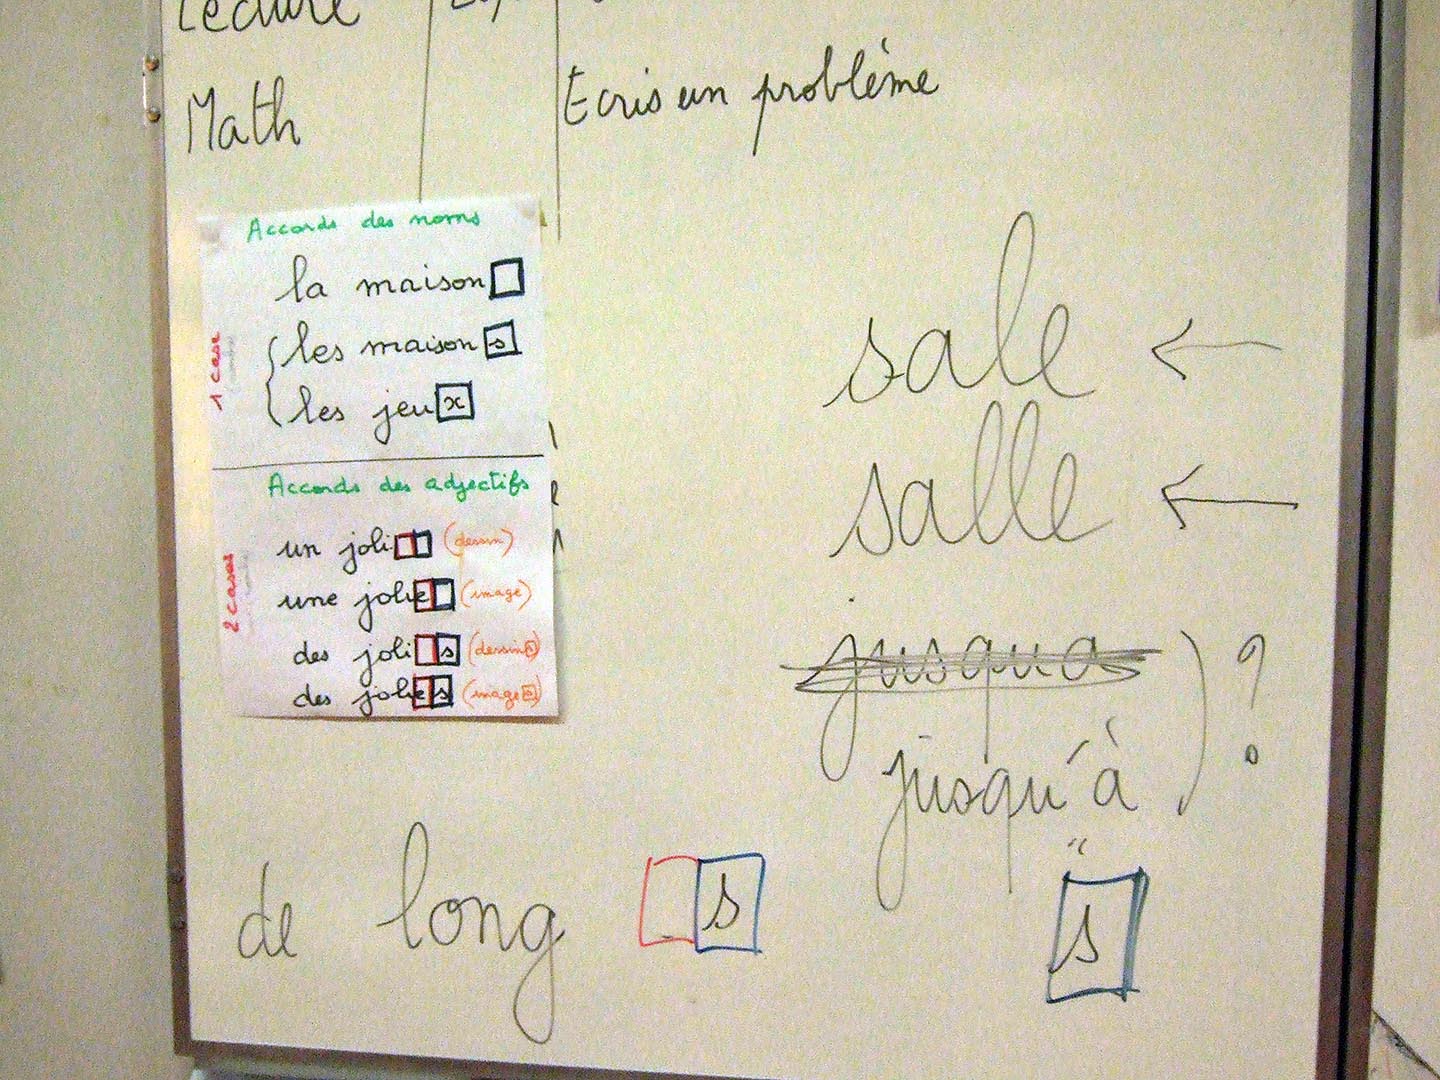 Lecture
Math
Ecris un problème
Accords des noms
la maison
1 case
les maison s
les jeu x
Accords des adjectifs
2 cases
un joli (dessin)
une joli e (image)
des joli s (dessin s)
des joli e s (image s)
sale ←
salle ←
jusqua
jusqu'à ?
de long s
" s